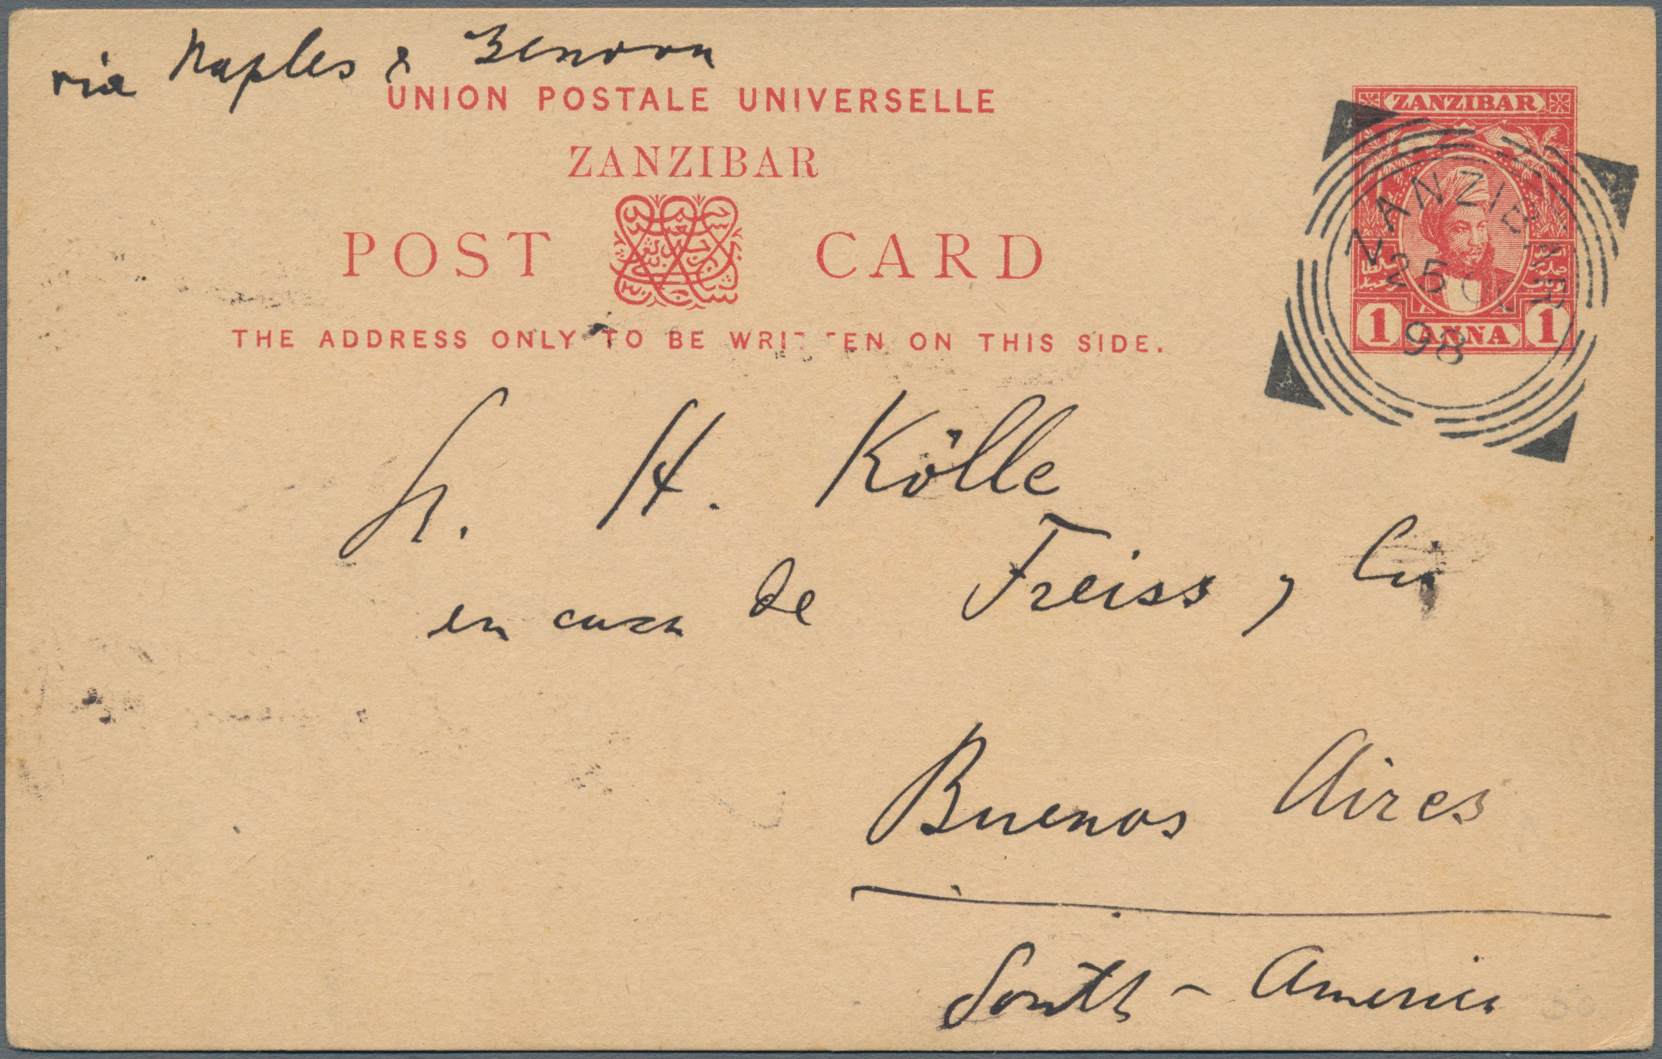 via Naples & Genova
UNION POSTALE UNIVERSELLE
ZANZIBAR
POST CARD
THE ADDRESS ONLY TO BE WRITTEN ON THIS SIDE.
ZANZIBAR
1 ANNA 1
ZANZIBAR
25 OC
98
Sr. H. Kölle
en casa de Freiss y Cia
Buenos Aires
South - America